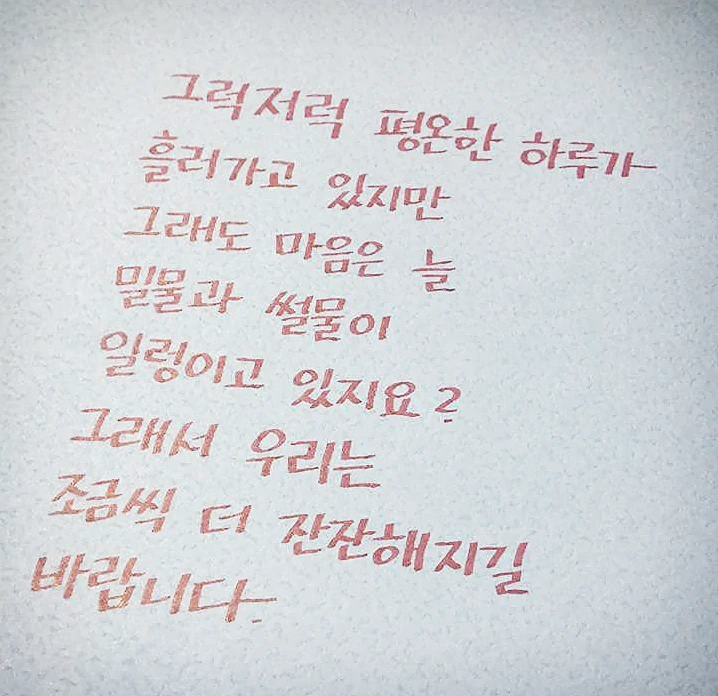 그럭저럭 평온한 하루가
흘러가고 있지만
그래도 마음은 늘
밀물과 썰물이
일렁이고 있지요?
그래서 우리는
조금씩 더 잔잔해지길
바랍니다.